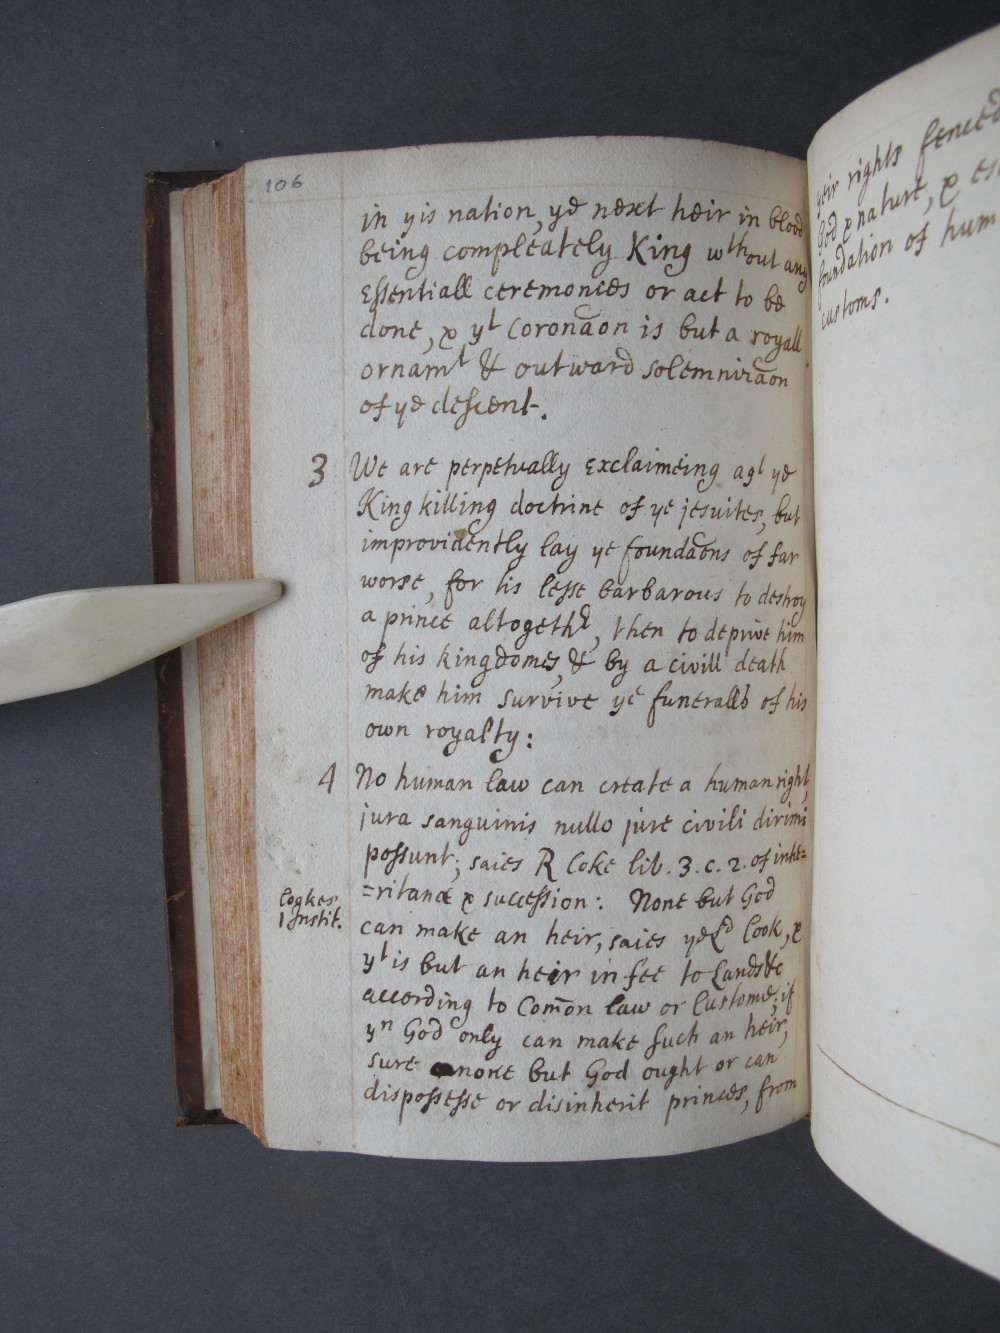 106
in yis nation, ye next heir in blood
being compleately King wthout any
Essentiall ceremonees or act to be
done, & yt Coronaon is but a royall
ornamt & outward solemnizaon
of ye descent.
3 We are perpetually exclaimeing agt ye
King killing doctrine of ye jesuites, but
improvidently lay ye foundaons of far
worse, for tis lesse barbarous to destroy
a prince altogethr, then to deprive him
of his kingdomes, & by a civill death
make him survive ye funeralls of his
own royalty:
4 No human law can create a human right,
jura sanguinis nullo jure civili dirimi
possunt; saies R Coke lib. 3. c. 2. of inhe=
=ritance & succession: None but God
Cogkes
1 Instit.
can make an heir, saies ye Ld Cook, &
yt is but an heir in fee to Lands &c
according to Comon law or Custome; if
yn God only can make such an heir,
sure none but God ought or can
dispossesse or disinherit princes, from
yeir rights fenced
God & nature, &
foundation of hum
customs.